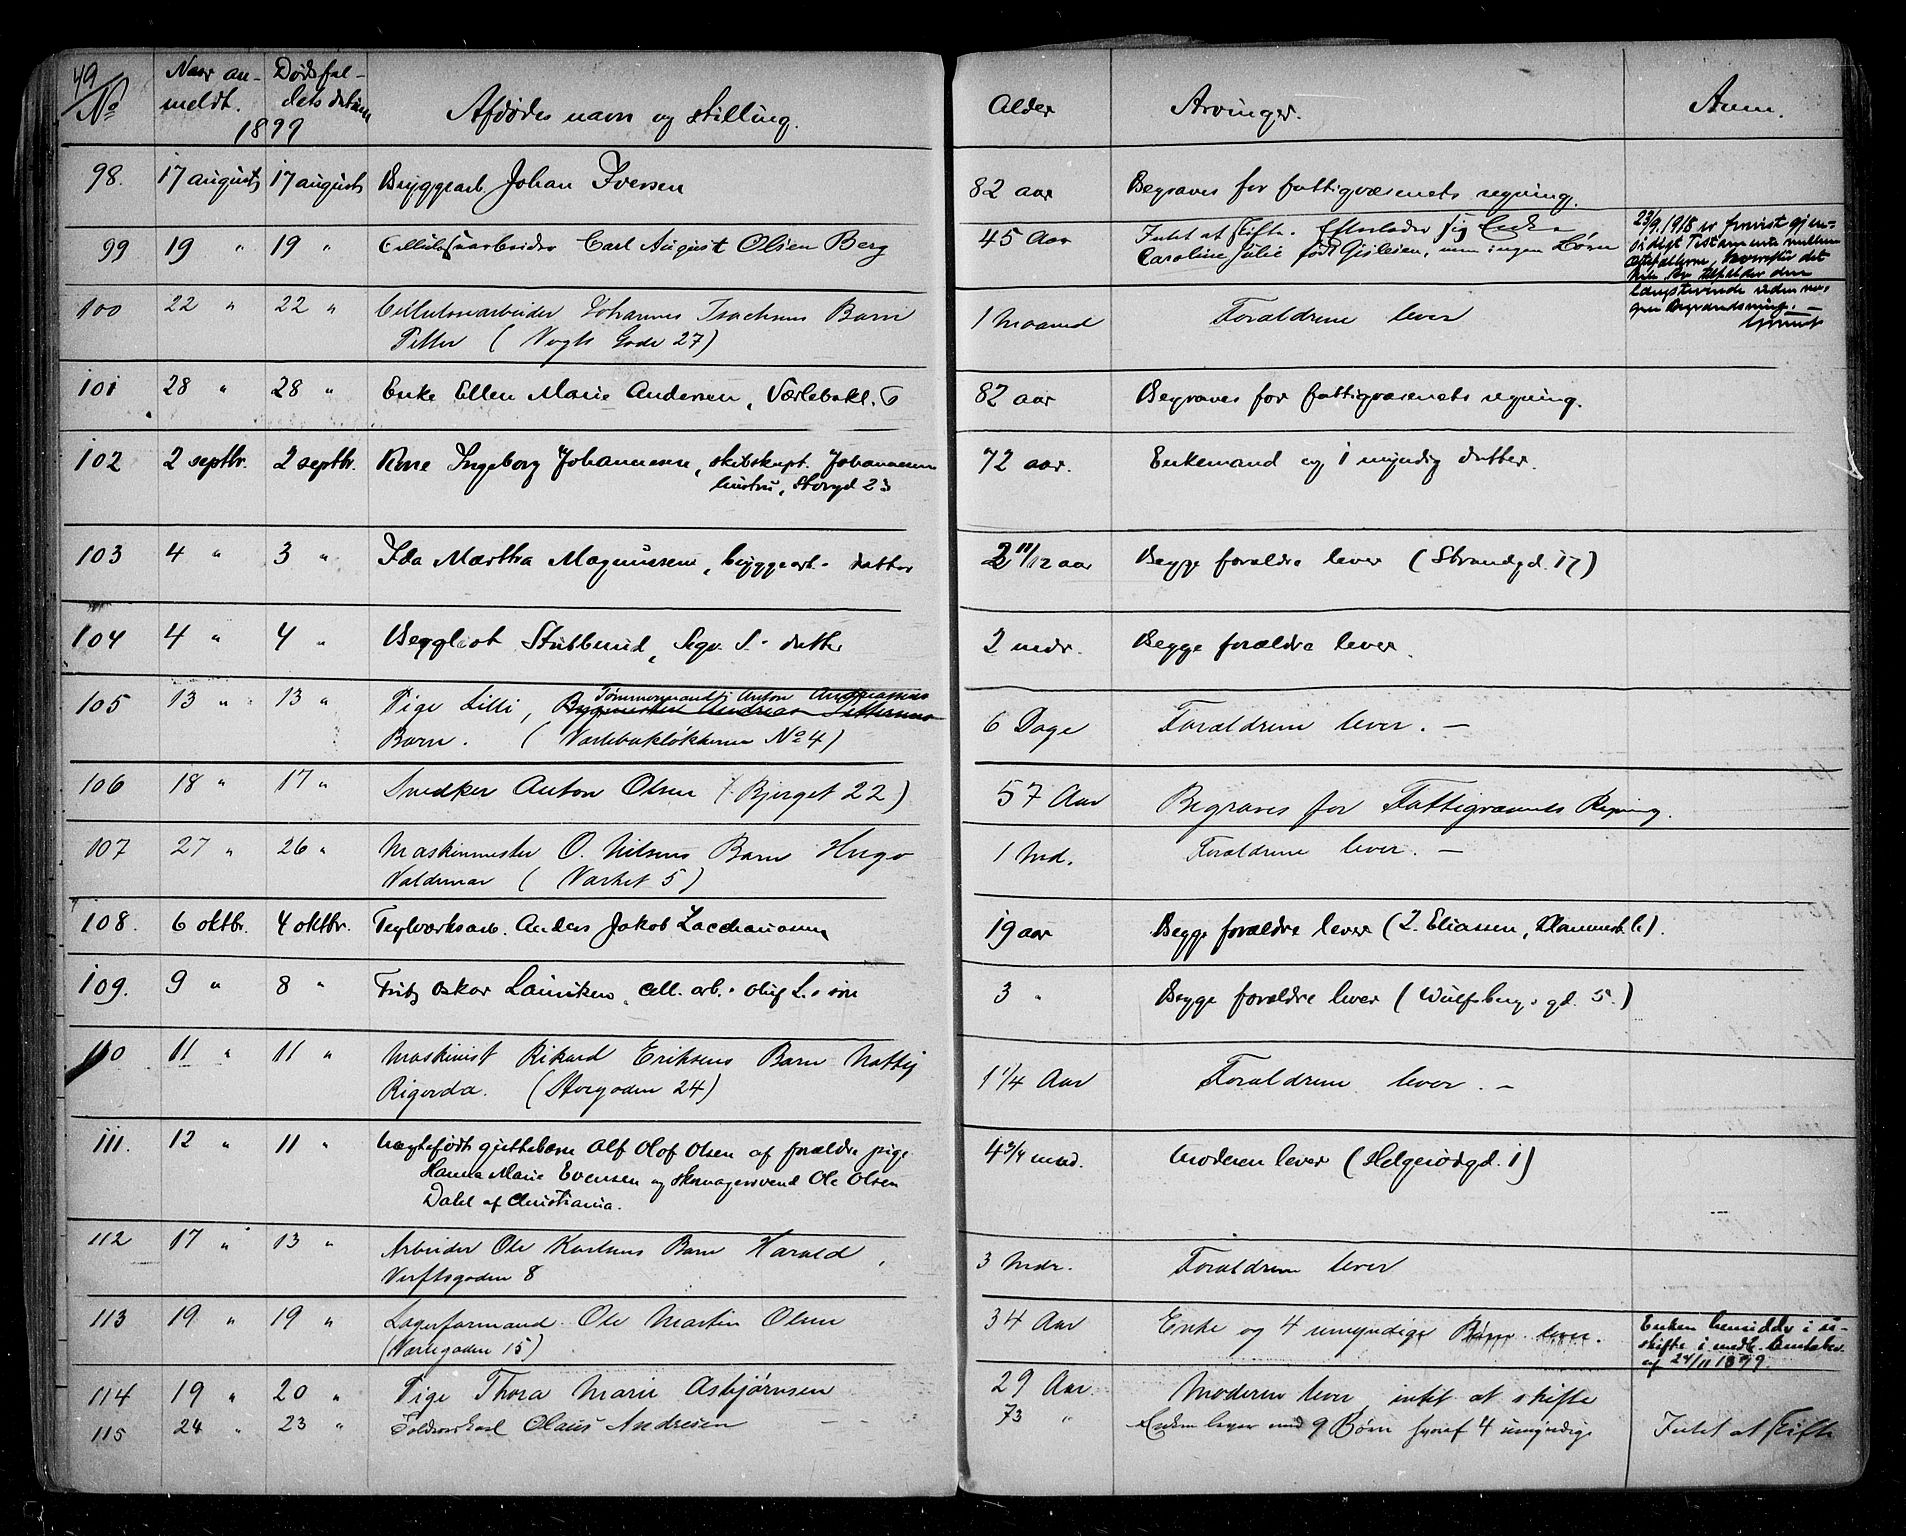 49
No
Naar an-
meldt.
Dødsfal-
lets datum
1899
Afdødes navn og stilling.
Alder
Arvinger.
Anm.
98. 17 august 17 august Bryggearb. Johan Iversen 82 aar Begraves for fattigvæsenets regning.
99 19 " 19 " Cellulosearbeider Carl August Olsen Berg 45 Aar Intet at skifte. Efterlader sig Enke
Caroline Julie født Gislesen, men ingen Børn
23/9 1918 er fremvist gjen-
sidigt Testamente mellem
Ægtefællerne, hvorefter det
hele Bo tilfalder den
længstlevende uden no-
gen Begrændsning. —
100 22 " 22 " Cellulosearbeider Johannes Isachsens Barn 1 Maaned Forældrene lever
Petter ( Vogts Gade 27)
101 28 " 28 " Enke Ellen Marie Andersen, Værlebakl. 6 82 aar Begraves for fattigvæsenets regning.
102 2 septbr. 2 septbr. Kone Ingeborg Johannesen, skibskapt. Johannesens 72 aar. Enkemand og 1 myndig datter.
hustru, Storgd 23
103 4 " 3 " Ida Martha Magnussen, bryggearb. datter 2 11/12 aar Begge forældre lever (Strandgd. 17)
104 4 " 4 " Bergliot Stubberud, Sigv. S. datter 2 mdr. Begge forældre lever.
105 13 " 13 " Pige Lilli, Tømmermand Anton Andreassens 6 Dage Forældrene lever. —
Bygmester Andreas Pettersens
Barn. ( Værlebakløkkerne No 4)
106 18 " 17 " Snedker Anton Olsen (Bjerget 22) 57 Aar Begraves for Fattigvæsenets Regning.
107 27 " 26 " Maskinmester O. Nilsens Barn Hugo 1 Md. Forældrene lever. —
Valdemar ( Værket 5)
108. 6 oktbr. 4 oktbr. Teglværksarb. Anders Jakob Zachariassen 19 aar Begge forældre lever (Z. Eliassen,
109. 9 " 8 " Fritz Oskar Lauritsen, cell. arb. Oluf L.s søn 3 " Begge forældre lever (Wulfsbergs gd. 5.)
110 11 " 11 " Maskinist Rikard Eriksens Barn 1 1/4 Aar Forældrene lever. —
Rigorda. (Storgaden 24)
111. 12 " 11 " Uægtefødt guttebarn Alf Olof Olsen af forældre pige 4 3/4 mnd. Moderen lever (Helgerødgd. 1)
Hanna Marie Evensen og skomagersvend Ole Olsen
Dalel af Christiania.
112 17 " 13 " Arbeider Ole Karlsens Barn Harald, 3 Mdr. Forældrene lever
Verftsgaden 8
113 19 " 19 " Lagerformand Ole Martin Olsen 34 Aar Enke og 4 umyndige Børn lever.
(Varnegaden 15)
Enken hensidder i u-
skifte i medh. af
af 24/11 1899.
114 19 " 20 " Pige Thora Marie Asbjørnsen 29 Aar Moderen lever intet at skifte
115 24 " 23 " Toldoverkarl Claus Andresen — 73 " Enken lever med 9 Børn hvoraf 4 umyndige Intet at skifte